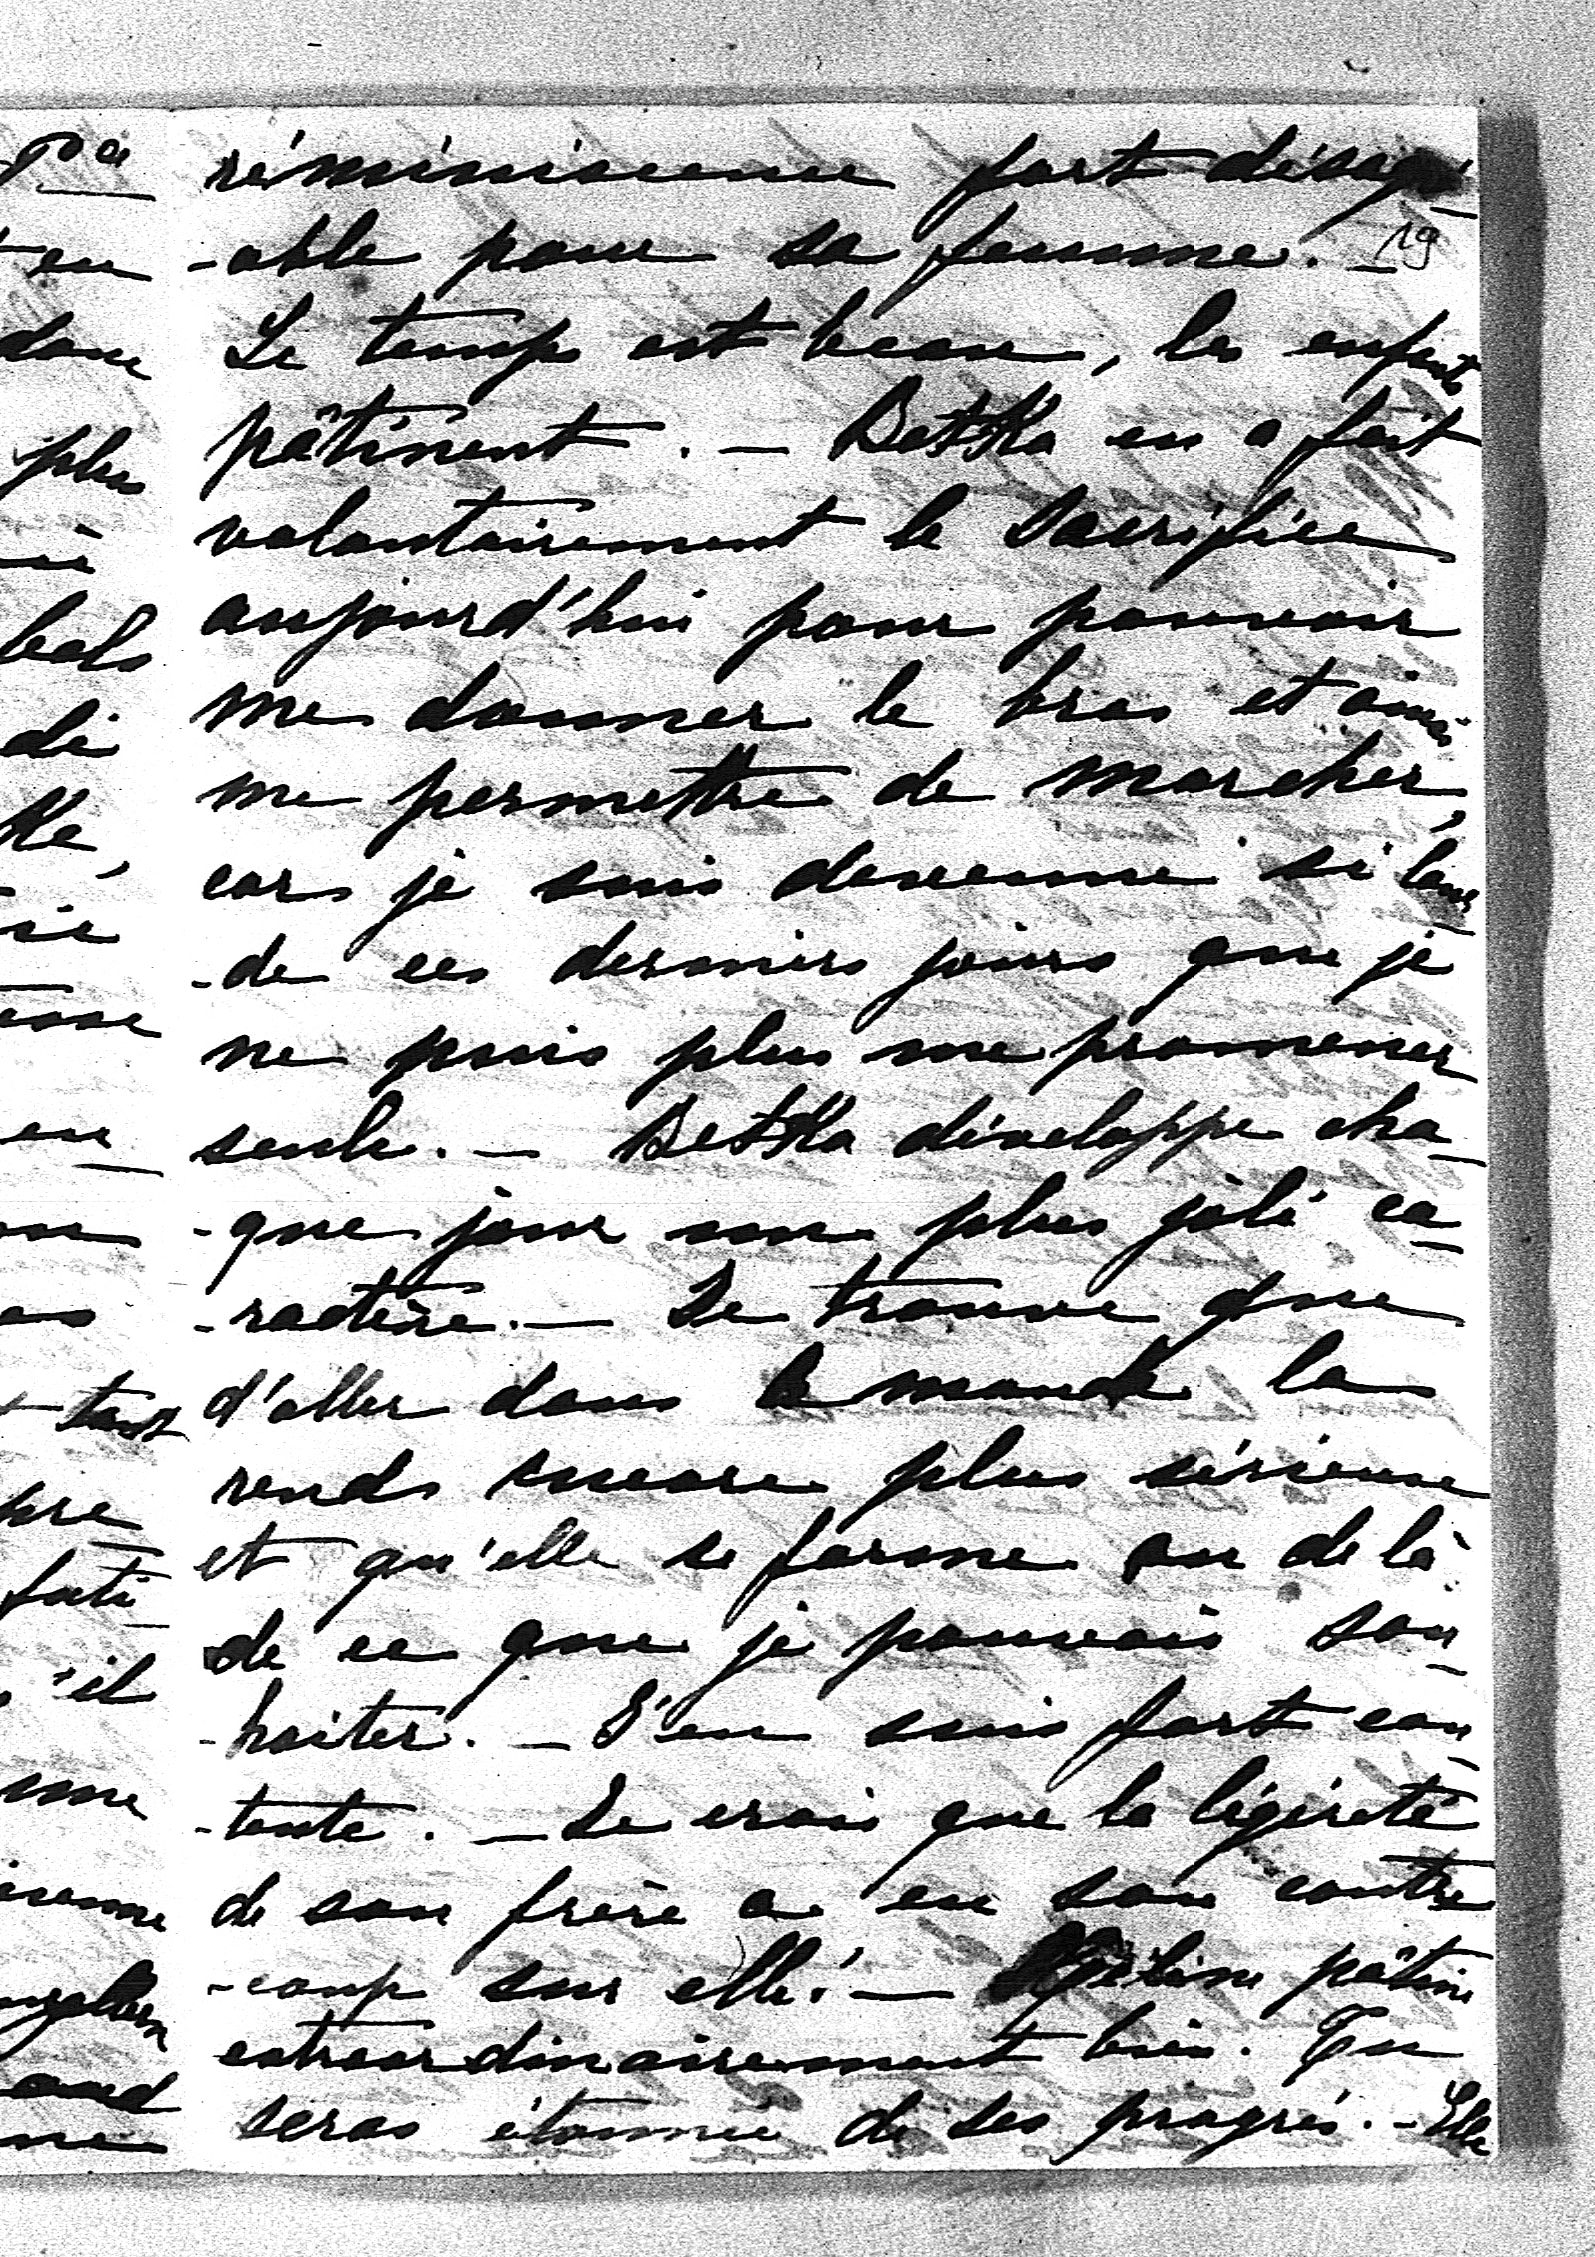 réminiscence fort désagré
-able pour sa femme. -
19
Le temps est beau, les enfants
pâtinent. - Betka en a fait
volontairement le sacrifice
aujourd'hui pour pouvoir
me donner le bras et ainsi
me permettre de marcher,
car je suis devenue si lour
-de ces derniers jours que je
ne puis plus me promener
seule. - Betka développe cha-
-que jour un plus joli ca-
-ractère. - Je trouve que
d'aller dans le monde la
rends encore plus sérieuse
et qu'elle se forme au delà
de ce que je pouvais sou-
-haiter. - J'en suis fort con-
-tente. - Je crois que la légèreté
de son frère a eu son contre
-coup sur elle. - pâtine
extraordinairement bien. Tu
seras étonnée de ses progrés. - Elle